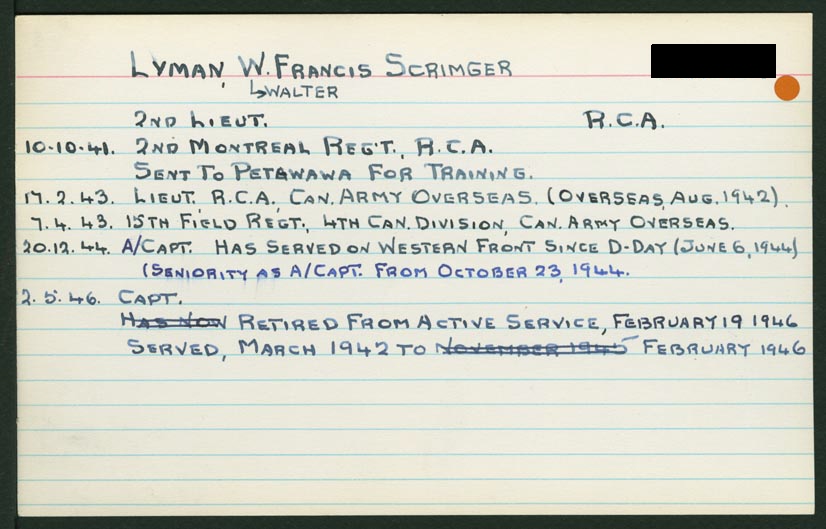 LYMAN, W. FRANCIS SCRIMGER
↳WALTER
2ND LIEUT. R.C.A.
10.10.41. 2ND MONTREAL REG'T., R.C.A.
SENT TO PETAWAWA FOR TRAINING.
17.2.43. LIEUT. R.C.A., CAN. ARMY OVERSEAS. (OVERSEAS, AUG. 1942).
7.4.43. 15TH FIELD REGT., 4TH CAN. DIVISION, CAN. ARMY OVERSEAS.
20.12.44. A/CAPT. HAS SERVED ON WESTERN FRONT SINCE D-DAY (JUNE 6, 1944)
(SENIORITY AS A/CAPT. FROM OCTOBER 23, 1944.
2.5.46. CAPT.
HAS NOW RETIRED FROM ACTIVE SERVICE, FEBRUARY 19 1946
SERVED, MARCH 1942 TO NOVEMBER 1945 FEBRUARY 1946